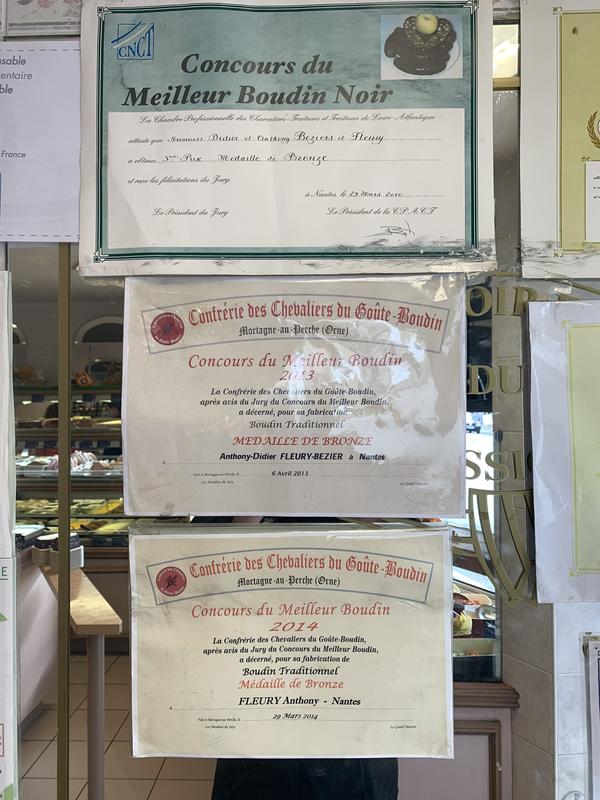 usable
mentaire
ble
France
CNCT
Concours du
Meilleur Boudin Noir
La Chambre Professionnelle des Charcutiers-Traiteurs et Traiteurs de Loire-Atlantique
atteste que Messieurs Didier et Anthony Beziers et Fleury
a obtenu 5ème Prix Médaille de Bronze
et reçu les félicitations du Jury
à Nantes, le 29 Mars 2010
Le Président du Jury Le Président de la C.P.A.C.T
Confrérie des Chevaliers du Goûte-Boudin
Mortagne-au-Perche (Orne)
Concours du Meilleur Boudin
2013
La Confrérie des Chevaliers du Goûte-Boudin,
après avis du Jury du Concours du Meilleur Boudin,
a décerné, pour sa fabrication
Boudin Traditionnel
MEDAILLE DE BRONZE
à Anthony-Didier FLEURY-BEZIER à Nantes
Fait à Mortagne-au-Perche, le 6 Avril 2013
Les Membres du Jury Le Grand Maître
Confrérie des Chevaliers du Goûte-Boudin
Mortagne-au-Perche (Orne)
Concours du Meilleur Boudin
2014
La Confrérie des Chevaliers du Goûte-Boudin,
après avis du Jury du Concours du Meilleur Boudin,
a décerné, pour sa fabrication de
Boudin Traditionnel
Médaille de Bronze
à FLEURY Anthony - Nantes
Fait à Mortagne-au-Perche, le 29 Mars 2014
Les Membres du Jury Le Grand Maistre
OIR
DU
SSI
E